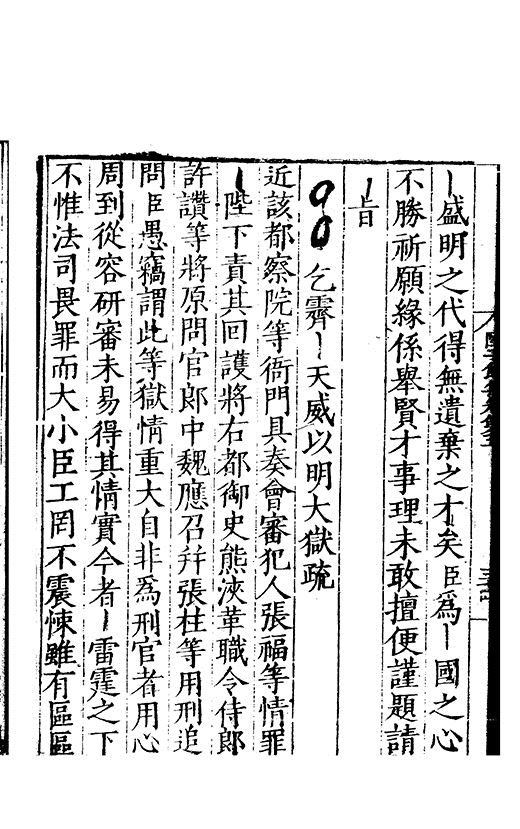 盛明之代得無遺棄之才矣臣爲國之心
不勝祈願緣係舉賢才事理未敢擅便謹題請
旨
90 乞霽天威以明大獄疏
近該都察院等衙門具奏會審犯人張福等情罪
陛下責其回護將右都御史熊浹革職令侍郎
許讚等將原問官郎中魏應召并張柱等用刑追
問臣愚竊謂此等獄情重大自非爲刑官者用心
周到從容研審未易得其情實今者雷霆之下
不惟法司畏罪而大小臣工罔不震悚雖有區區